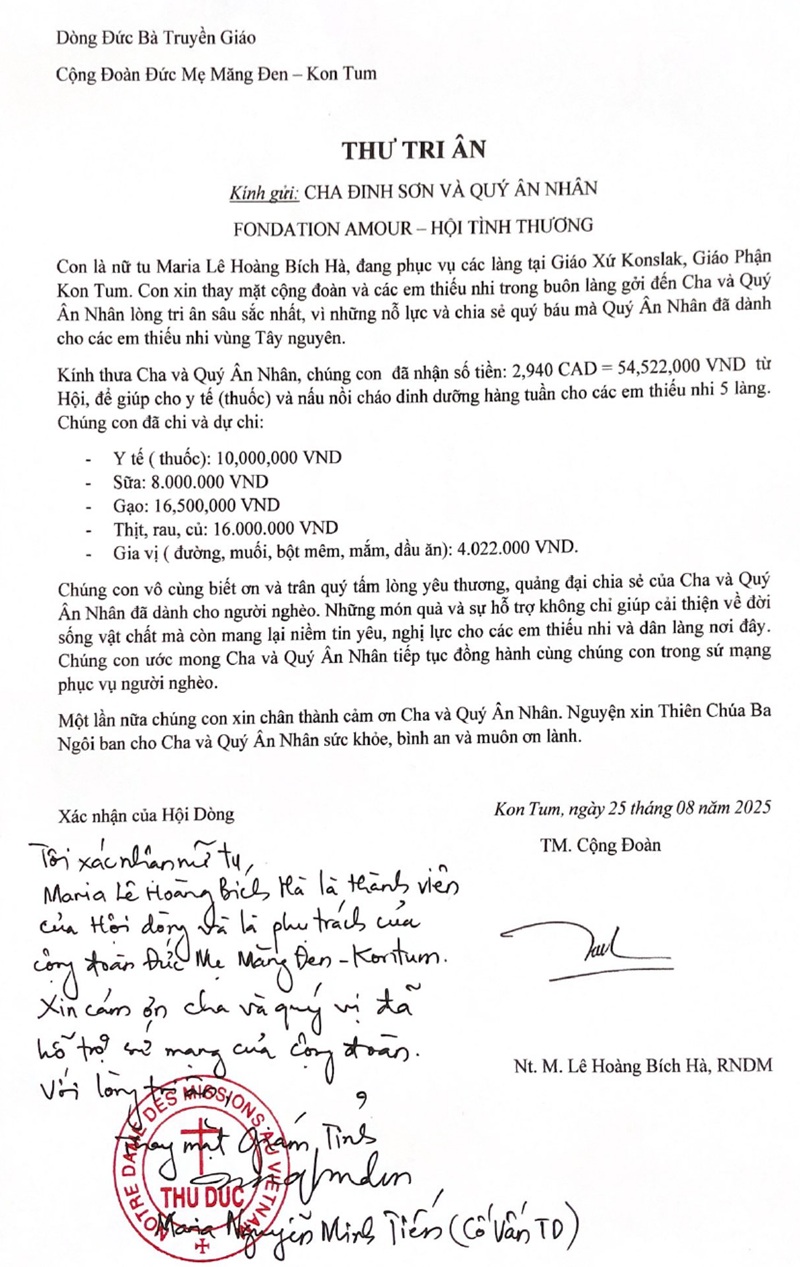 Dòng Đức Bà Truyền Giáo
Cộng Đoàn Đức Mẹ Măng Đen – Kon Tum
THƯ TRI ÂN
Kính gửi: CHA ĐINH SƠN VÀ QUÝ ÂN NHÂN
FONDATION AMOUR – HỘI TÌNH THƯƠNG
Con là nữ tu Maria Lê Hoàng Bích Hà, đang phục vụ các làng tại Giáo Xứ Konslak, Giáo Phận
Kon Tum. Con xin thay mặt cộng đoàn và các em thiếu nhi trong buôn làng gởi đến Cha và Quý
Ân Nhân lòng tri ân sâu sắc nhất, vì những nỗ lực và chia sẻ quý báu mà Quý Ân Nhân đã dành
cho các em thiếu nhi vùng Tây nguyên.
Kính thưa Cha và Quý Ân Nhân, chúng con đã nhận số tiền: 2,940 CAD = 54,522,000 VND từ
Hội, để giúp cho y tế (thuốc) và nấu nồi cháo dinh dưỡng hàng tuần cho các em thiếu nhi 5 làng.
Chúng con đã chi và dự chi:
- Y tế ( thuốc): 10,000,000 VND
- Sữa: 8.000.000 VND
- Gạo: 16,500,000 VND
- Thịt, rau, củ: 16.000.000 VND
- Gia vị ( đường, muối, bột mêm, mắm, dầu ăn): 4.022.000 VND.
Chúng con vô cùng biết ơn và trân quý tấm lòng yêu thương, quảng đại chia sẻ của Cha và Quý
Ân Nhân đã dành cho người nghèo. Những món quà và sự hỗ trợ không chỉ giúp cải thiện về đời
sống vật chất mà còn mang lại niềm tin yêu, nghị lực cho các em thiếu nhi và dân làng nơi đây.
Chúng con ước mong Cha và Quý Ân Nhân tiếp tục đồng hành cùng chúng con trong sứ mạng
phục vụ người nghèo.
Một lần nữa chúng con xin chân thành cảm ơn Cha và Quý Ân Nhân. Nguyện xin Thiên Chúa Ba
Ngôi ban cho Cha và Quý Ân Nhân sức khỏe, bình an và muôn ơn lành.
Kon Tum, ngày 25 tháng 08 năm 2025
TM. Cộng Đoàn
Nt. M. Lê Hoàng Bích Hà, RNDM
Xác nhận của Hội Dòng
Tôi xác nhận nữ tu,
Maria Lê Hoàng Bích Hà là thành viên
của Hội dòng và là phụ trách của
cộng đoàn Đức Mẹ Măng Đen - Kontum.
Xin cám ơn cha và quý vị đã
hỗ trợ sứ mạng của cộng đoàn.
Với lòng tri ân,
Thay mặt Giám Tỉnh
Maria Nguyễn Minh Tiến (Cố Vấn TD)
NOTRE DAME DES MISSIONS AU VIETNAM
THU DUC